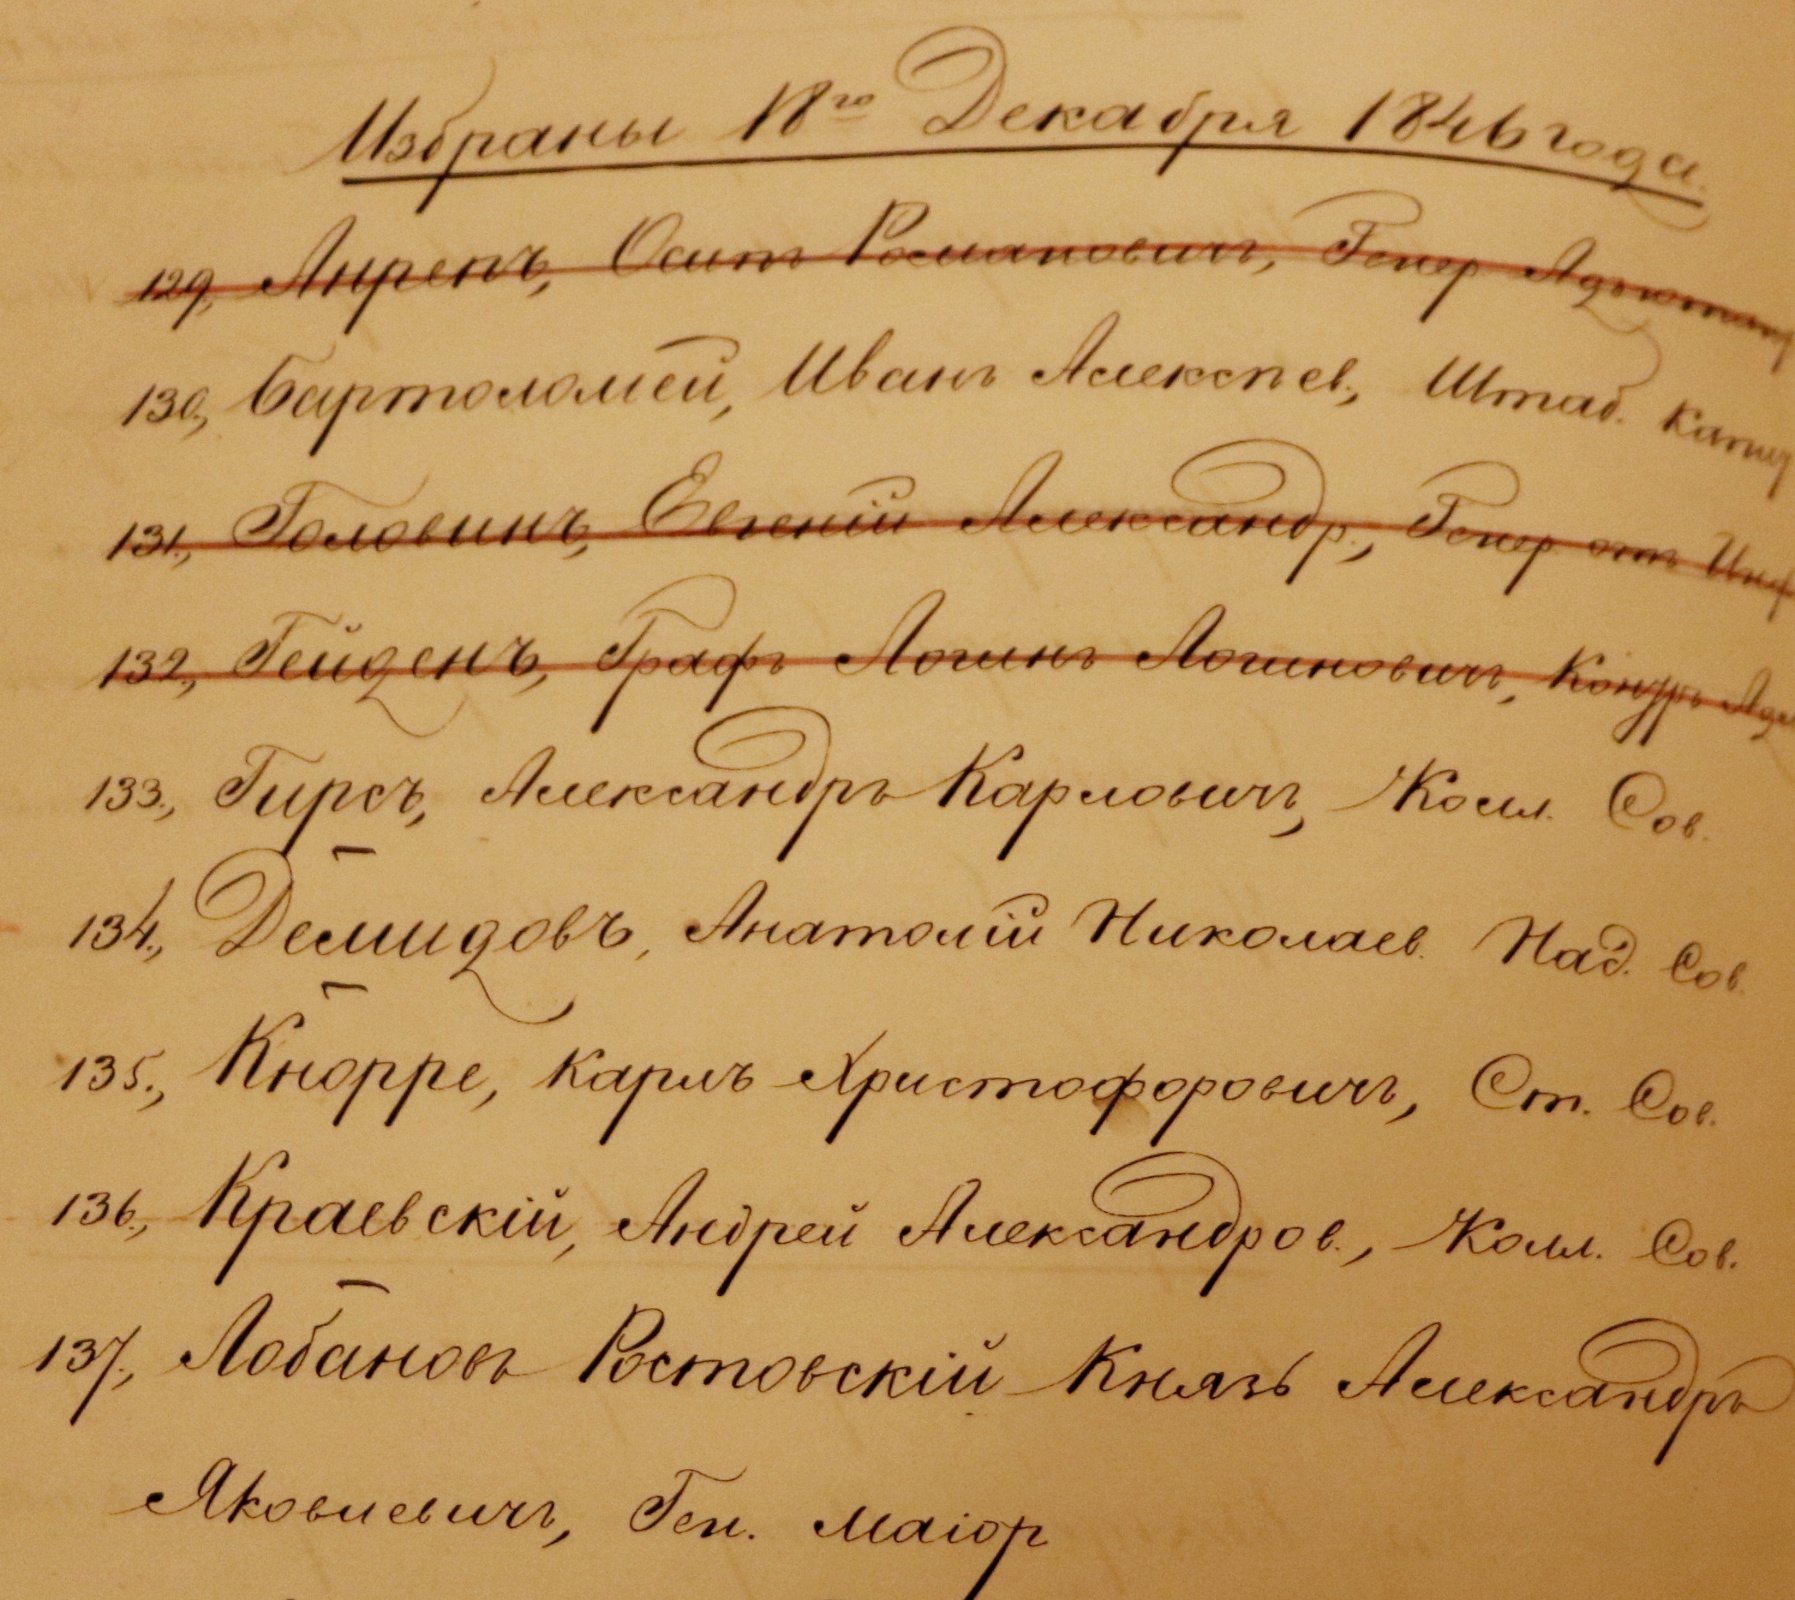 Избраны 18го Декабря 1846 года.
129., Анрепъ, Осипъ Романовичъ, Генер Адъютант
130., Бартоломей, Иванъ Алексѣев., Штаб. Капит
131., Головинъ, Евгеній Александр., Генер. отъ Инф
132., Гейденъ, Графъ Логинъ Логиновичъ, Контръ Адм
133., Гирсъ, Александръ Карловичъ, Колл. Сов.
134., Демидовъ, Анатолій Николаев. Над. Сов.
135., Кнорре, Карлъ Христофоровичъ, Ст. Сов.
136., Краевскій, Андрей Александров., Колл. Сов.
137., Лобановъ Ростовскій Князь Александръ
Яковлевичъ, Ген. Маіоръ